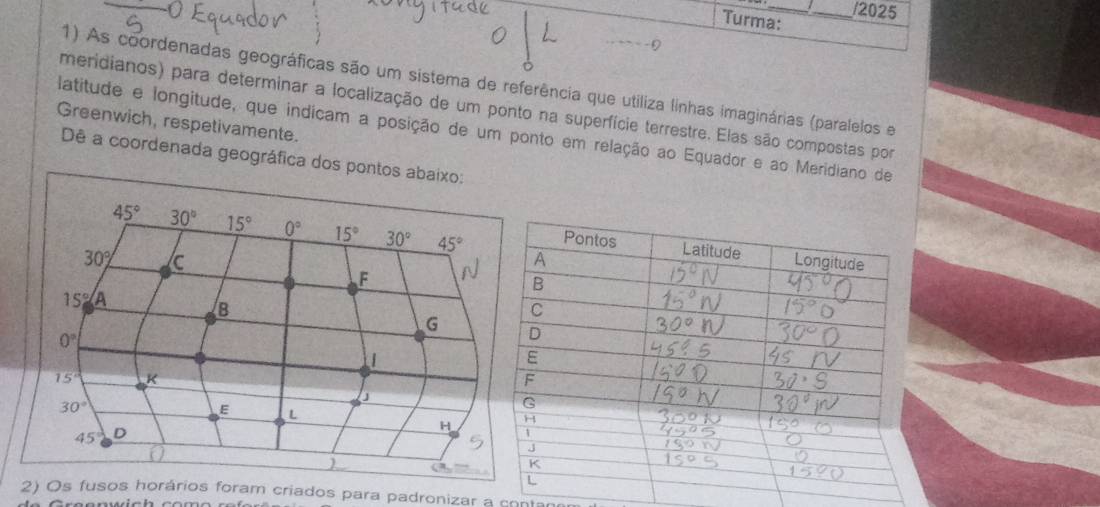 S O Equador
Longitude
O L
O
Turma: /2025
1) As coordenadas geográficas são um sistema de referência que utiliza linhas imaginárias (paralelos e
meridianos) para determinar a localização de um ponto na superfície terrestre. Elas são compostas por
latitude e longitude, que indicam a posição de um ponto em relação ao Equador e ao Meridiano de
Greenwich, respetivamente.
Dê a coordenada geográfica dos pontos abaixo:
45° 30° 15° 0° 15° 30° 45°
30° C F N
15° A B G
0° I
15° K J
30° E L H
45° D S
O L
Pontos Latitude Longitude
A 15° N 45° O
B 15° N 15° O
C 30° N 30° O
D 45° S 45 N
E 15° O 30° S
F 15° N 30° N
G 30° N 15° O
H 45° S O
I 15° N O
J 15° S 15° O
K
L
2) Os fusos horários foram criados para padronizar a